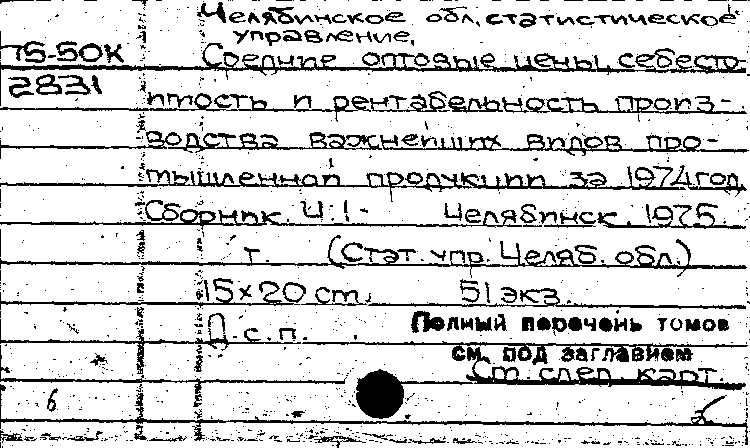 Челябинское обл. статистическое
управление.
75-50К Средние оптовые цены, себесто-
2831
имость и рентабельность произ-
водства важнейших видов про-
мышленной продукции за 1974 год.
Сборник. Ч. 1- Челябинск. 1975.
т. (Стат. упр. Челяб. обл.)
15×20 cm. 51 экз.
Д.с.п.
Полный перечень томов
см. под заглавием
См. след. карт.
6